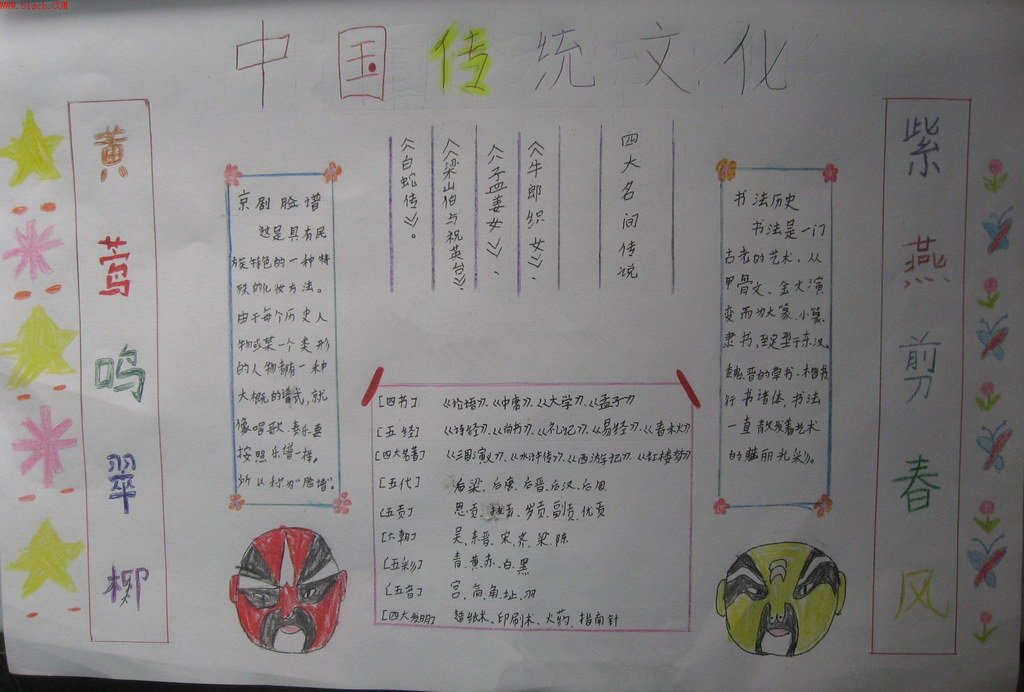 www.51scb.COM
中国传统文化
黄莺鸣翠柳
京剧脸谱
这是具有民
族特色的一种特
殊的化妆方法。
由于每个历史人
物或某一个类形
的人物都有一种
大概的谱式,就
像唱歌、奏乐要
按照乐谱一样,
所以称为“脸谱”。
四大名间传说
《牛郎织女》、
《孟姜女》、
《梁山伯与祝英台》、
《白蛇传》。
[四书] 《论语》、《中庸》、《大学》、《孟子》
[五经] 《诗经》、《尚书》、《礼记》、《易经》、《春秋》
[四大名著] 《三国演义》、《水浒传》、《西游记》、《红楼梦》
[五代] 后梁、后唐、后晋、后汉、后周
[五贡] 恩贡、拔贡、岁贡、副贡、优贡
[六朝] 吴、东晋、宋、齐、梁、陈
[五彩] 青、黄、赤、白、黑
[五音] 宫、商、角、址、羽
[四大发明] 造纸术、印刷术、火药、指南针
书法历史
书法是一门
古老的艺术,从
甲骨文、金文演
变而为大篆、小篆、
隶书,至定型于东汉、
魏、晋的草书、楷书、
行书诸体,书法
一直散发着艺术
的魅丽光彩。
紫燕剪春风